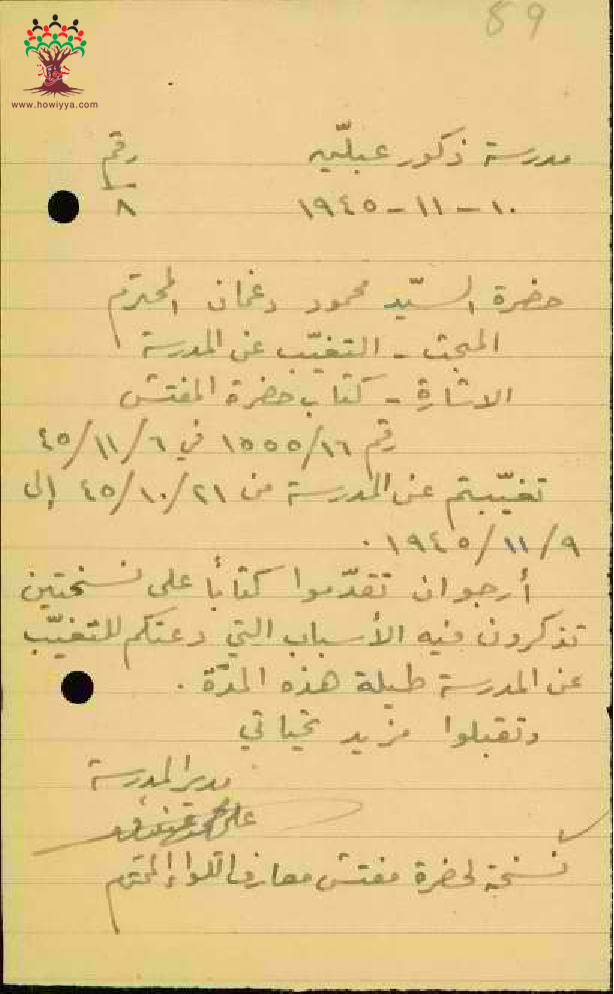 89
www.howiyya.com
مدرسة ذكور عبلّين رقم
١٠-١١-١٩٤٥ ٨
حضرة السيّد محمود دغمان المحترم
المبحث - التغيّب عن المدرسة
الاشارة - كتاب حضرة المفتش
رقم ١٥٥٥/١٦ في ٤٥/١١/٦
تغيّبتم عن المدرسة من ٤٥/١٠/٢١ إلى
١٩٤٥/١١/٩.
أرجو ان تقدّموا كتاباً على نسختين
تذكرون فيه الأسباب التي دعتكم للتغيّب
عن المدرسة طيلة هذه المدّة.
وتقبلوا مزيد تحياتي
مدير المدرسة
علي
نسخة لحضرة مفتش معارف اللواء المحترم